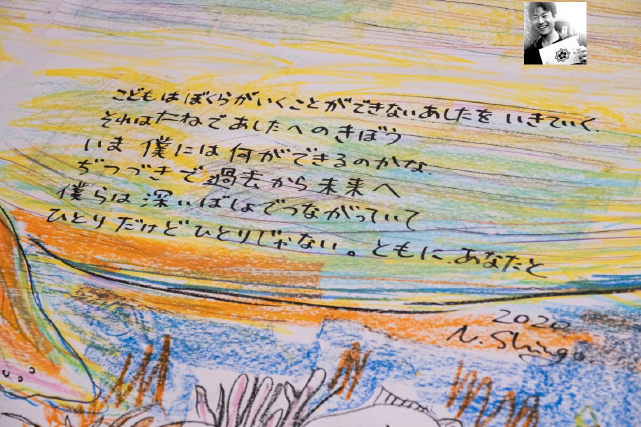 こどもはぼくらがいくことができないあしたを いきていく.
それはたねであしたへのきぼう
いま 僕には何ができるのかな.
ぢつづきで過去から未来へ
僕らは深いばしょでつながっていて
ひとりだけどひとりじゃない。ともに.あなたと
2020
N. Shingo.